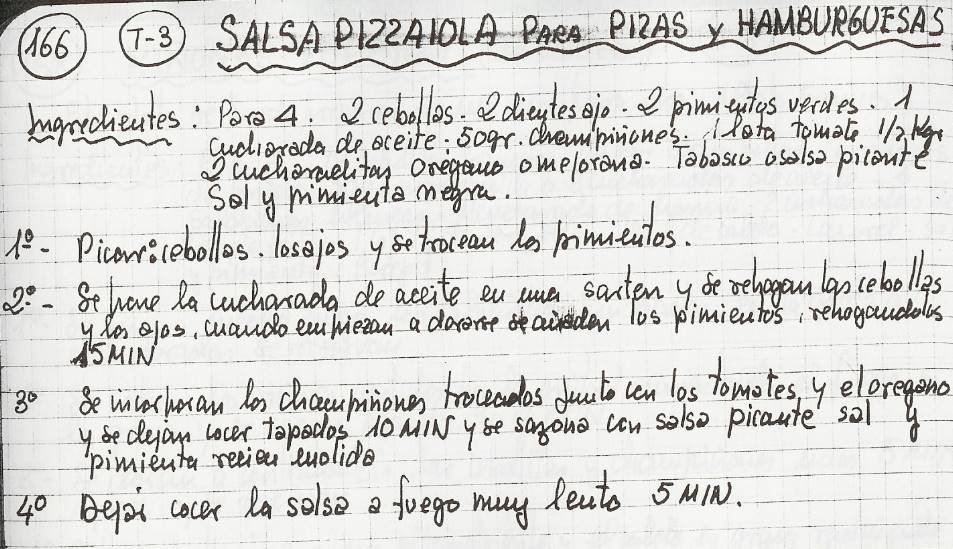 166 T-3 SALSA PIZZAIOLA PARA PIZAS y HAMBURGUESAS
Ingredientes: Para 4. 2 cebollas. 2 dientes ajo. 2 pimientos verdes. 1
cucharada de aceite. 50gr. champiñones. 1 lata tomate 1/2 Kgr
2 cucharaditas oregano o mejorana. Tabasco o salsa picante
Sal y pimienta negra.
1º- Picar: cebollas. los ajos y se trocean los pimientos.
2º- Se pone la cucharada de aceite en una sarten y se rehogan las cebollas
y los ajos, cuando empiezan a dorarse se añaden los pimientos, rehogandolos
15 MIN
3º Se incorporan los champiñones troceados junto con los tomates y el oregano
y se dejan cocer tapados 10 MIN y se sazona con salsa picante sal y
pimienta recien molida
4º Dejar cocer la salsa a fuego muy lento 5 MIN.